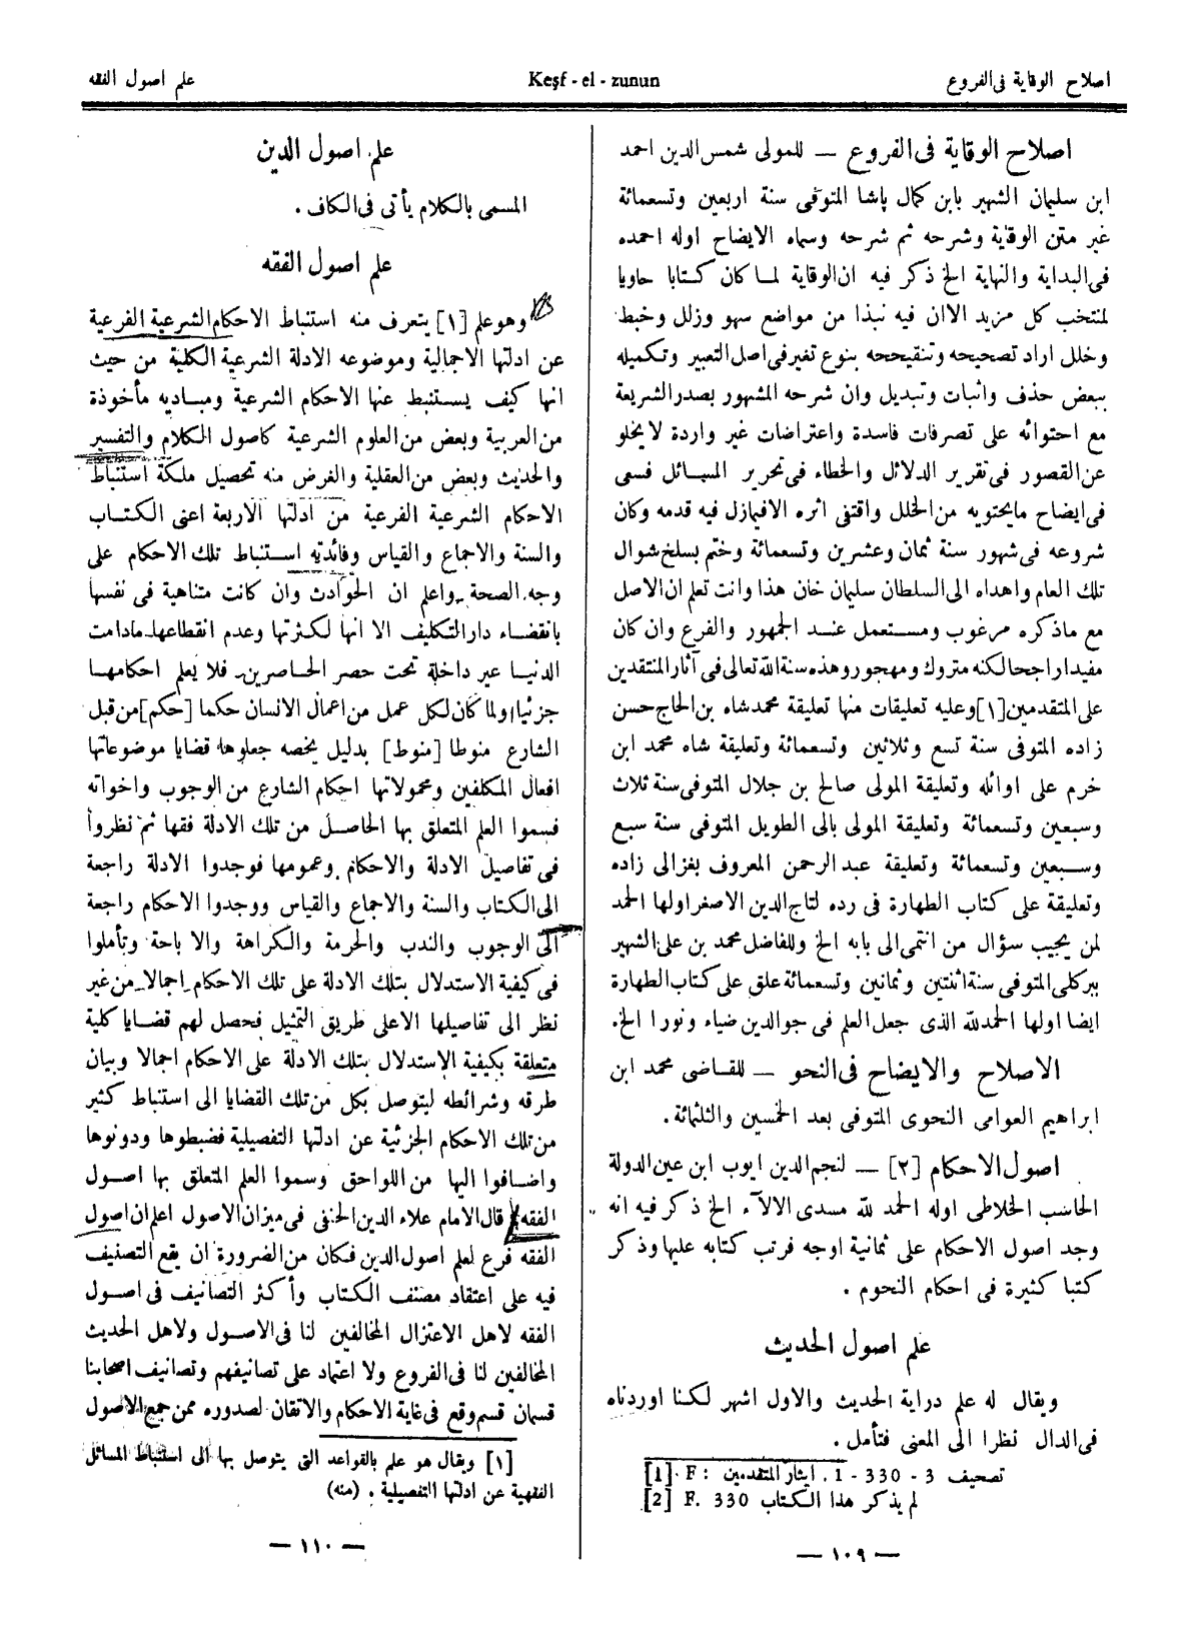 اصلاح الوقاية فى الفروع
Keşf - el - zunun
علم اصول الفقه
اصلاح الوقاية فى الفروع — للمولى شمس الدين احمد
ابن سليمان الشهير بابن كمال پاشا المتوفى سنة اربعين وتسعمائة
غير متن الوقاية وشرحه ثم شرحه وسماه الايضاح اوله احمده
فى البداية والنهاية الخ ذكر فيه ان الوقاية لما كان كتابا حاويا
لمنتخب كل مزيد الاان فيه نبذا من مواضع سهو وزلل وخبط
وخلل اراد تصحيحه وتنقيحه بنوع تغير فى اصل التعبير وتكميله
ببعض حذف واثبات وتبديل وان شرحه المشهور بصدر الشريعة
مع احتوائه على تصرفات فاسدة واعتراضات غير واردة لا يخلو
عن القصور فى تقرير الدلائل والخطاء فى تحرير المسائل فسعى
فى ايضاح مايحتويه من الخلل واقتفى اثره الافيمازل فيه قدمه وكان
شروعه فى شهور سنة ثمان وعشرين وتسعمائة وختم بسلخ شوال
تلك العام واهداه الى السلطان سليمان خان هذا وانت تعلم ان الاصل
مع ماذكره مرغوب ومستعمل عند الجمهور والفرع وان كان
مفيدا راجحا لكنه متروك ومهجور وهذه سنة الله تعالى فى آثار المنتقدين
على المتقدمين [١] وعليه تعليقات منها تعليقة محمد شاه بن الحاج حسن
زاده المتوفى سنة تسع وثلاثين وتسعمائة وتعليقة شاه محمد ابن
خرم على اوائله وتعليقة المولى صالح بن جلال المتوفى سنة ثلاث
وسبعين وتسعمائة وتعليقة المولى بالى الطويل المتوفى سنة سبع
وسبعين وتسعمائة وتعليقة عبد الرحمن المعروف بغزالى زاده
وتعليقة على كتاب الطهارة فى رده لتاج الدين الاصغر اولها الحمد
لمن يجيب سؤال من انتمى الى بابه الخ وللفاضل محمد بن على الشهير
ببركلى المتوفى سنة اثنتين وثمانين وتسعمائة علق على كتاب الطهارة
ايضا اولها الحمد لله الذى جعل العلم فى جو الدين ضياء ونورا الخ.
الاصلاح والايضاح فى النحو — للقاضى محمد ابن
ابراهيم العوامى النحوى المتوفى بعد الخمسين والثلثمائة.
اصول الاحكام [٢] — لنجم الدين ايوب ابن عين الدولة
الحاسب الخلاطى اوله الحمد لله مسدى الآلآء الخ ذكر فيه انه
وجد اصول الاحكام على ثمانية اوجه فرتب كتابه عليها وذكر
كتبا كثيرة فى احكام النجوم .
علم اصول الحديث
ويقال له علم دراية الحديث والاول اشهر لكنا اوردناه
فى الدال نظرا الى المعنى فتأمل .
[1] F : ايثار المتقدمين . 1 - 330 - 3 تصحيف
[2] F. 330 لم يذكر هذا الكتاب
— ١٠٩ —
علم اصول الدين
المسمى بالكلام يأتى فى الكاف .
علم اصول الفقه
وهو علم [١] يتعرف منه استنباط الاحكام الشرعية الفرعية
عن ادلتها الاجمالية وموضوعه الادلة الشرعية الكلية من حيث
انها كيف يستنبط عنها الاحكام الشرعية ومباديه مأخوذة
من العربية وبعض من العلوم الشرعية كاصول الكلام والتفسير
والحديث وبعض من العقلية والغرض منه تحصيل ملكة استنباط
الاحكام الشرعية الفرعية من ادلتها الاربعة اعنى الكتاب
والسنة والاجماع والقياس وفائدته استنباط تلك الاحكام على
وجه الصحة واعلم ان الحوادث وان كانت متناهية فى نفسها
بانقضاء دار التكليف الا انها لكثرتها وعدم انقطاعها مادامت
الدنيا غير داخلة تحت حصر الحاصرين فلا يعلم احكامها
جزئيا ولما كان لكل عمل من اعمال الانسان حكما [حكم] من قبل
الشارع منوطا [منوط] بدليل يخصه جعلوها قضايا موضوعاتها
افعال المكلفين ومحمولاتها احكام الشارع من الوجوب واخواته
فسموا العلم المتعلق بها الحاصل من تلك الادلة فقها ثم نظروا
فى تفاصيل الادلة والاحكام وعمومها فوجدوا الادلة راجعة
الى الكتاب والسنة والاجماع والقياس ووجدوا الاحكام راجعة
الى الوجوب والندب والحرمة والكراهة والاباحة وتأملوا
فى كيفية الاستدلال بتلك الادلة على تلك الاحكام اجمالا من غير
نظر الى تفاصيلها الاعلى طريق التمثيل فحصل لهم قضايا كلية
متعلقة بكيفية الاستدلال بتلك الادلة على الاحكام اجمالا وبيان
طرقه وشرائطه ليتوصل بكل من تلك القضايا الى استنباط كثير
من تلك الاحكام الجزئية عن ادلتها التفصيلية فضبطوها ودونوها
واضافوا اليها من اللواحق وسموا العلم المتعلق بها اصول
الفقه قال الامام علاء الدين الحنفى فى ميزان الاصول اعلم ان اصول
الفقه فرع لعلم اصول الدين فكان من الضرورة ان يقع التصنيف
فيه على اعتقاد مصنف الكتاب وأكثر التصانيف فى اصول
الفقه لاهل الاعتزال المخالفين لنا فى الاصول ولاهل الحديث
المخالفين لنا فى الفروع ولا اعتماد على تصانيفهم وتصانيف اصحابنا
قسمان قسم وقع فى غاية الاحكام والاتقان لصدوره ممن جمع الاصول
[١] ويقال هو علم بالقواعد التى يتوصل بها الى استنباط المسائل
الفقهية عن ادلتها التفصيلية . (منه)
— ١١٠ —